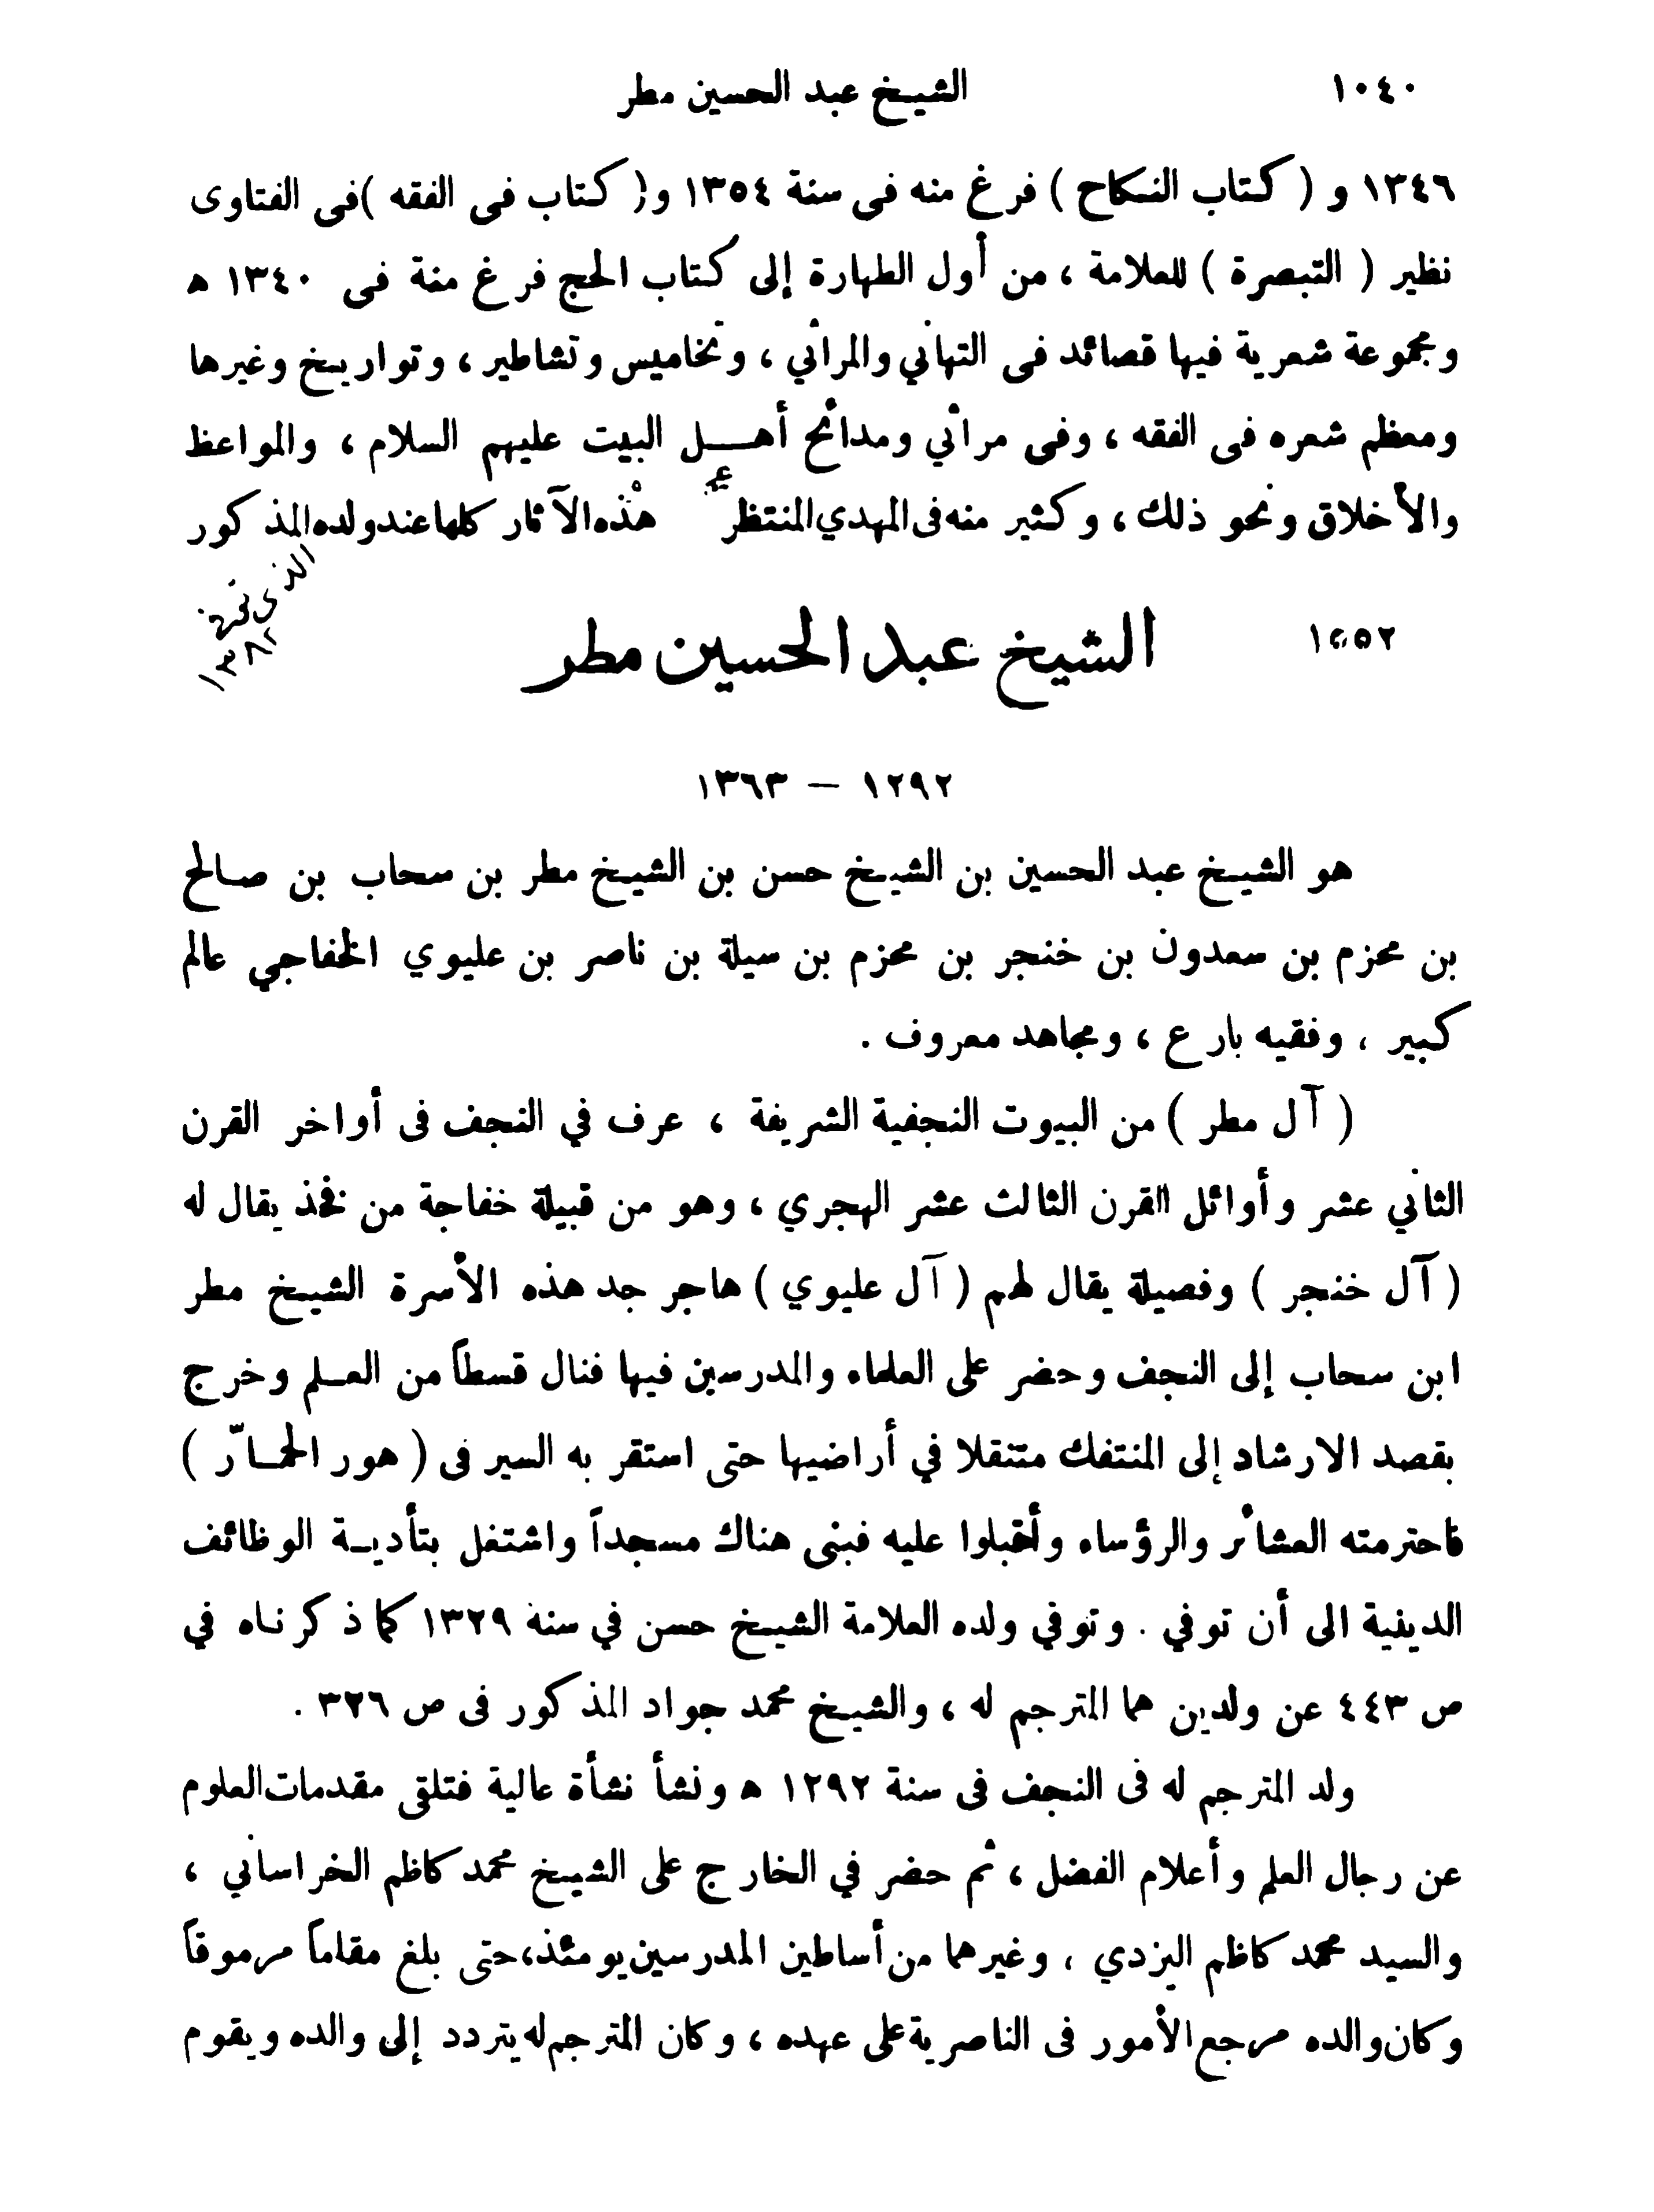 ١٠٤٠ الشيخ عبد الحسين مطر
١٣٤٦ و ( كتاب النكاح ) فرغ منه فى سنة ١٣٥٤ و( كتاب فى الفقه )فى الفتاوى
نظير ( التبصرة ) للعلامة ، من أول الطهارة إلى كتاب الحج فرغ منة فى ١٣٤٠ ه
ومجموعة شعرية فيها قصائد فى التهاني والمراثي ، وتخاميس وتشاطير ، وتواريخ وغيرها
ومعظم شعره فى الفقه ، وفى مراثي ومدائح أهل البيت عليهم السلام ، والمواعظ
والأخلاق ونحو ذلك ، وكثير منه فى المهدي المنتظر ع هذه الآثار كلها عند ولده المذكور
الذى
١٣٨٢
١٥٥٢ الشيخ عبد الحسين مطر
١٢٩٢ — ١٣٦٣
هو الشيخ عبد الحسين بن الشيخ حسن بن الشيخ مطر بن سحاب بن صالح
بن محزم بن سعدون بن خنجر بن محزم بن سيلة بن ناصر بن عليوي الخفاجي عالم
كبير ، وفقيه بارع ، ومجاهد معروف .
( آل مطر ) من البيوت النجفية الشريفة ، عرف في النجف فى أواخر القرن
الثاني عشر وأوائل القرن الثالث عشر الهجري ، وهو من قبيلة خفاجة من فخذ يقال له
( آل خنجر ) وفصيلة يقال لهم ( آل عليوي ) هاجر جد هذه الأسرة الشيخ مطر
ابن سحاب إلى النجف وحضر على العلماء والمدرسين فيها فنال قسطاً من العلم وخرج
بقصد الارشاد إلى المنتفك متنقلا في أراضيها حتى استقر به السير فى ( هور الحمّار )
فاحترمته العشائر والرؤساء وأقبلوا عليه فبنى هناك مسجداً واشتغل بتأدية الوظائف
الدينية الى أن توفي . وتوفي ولده العلامة الشيخ حسن في سنة ١٣٢٩ كما ذكرناه في
ص ٤٤٣ عن ولدين هما المترجم له ، والشيخ محمد جواد المذكور فى ص ٣٢٦ .
ولد المترجم له فى النجف فى سنة ١٢٩٢ ه ونشأ نشأة عالية فتلقى مقدمات العلوم
عن رجال العلم وأعلام الفضل ، ثم حضر في الخارج على الشيخ محمد كاظم الخراساني ،
والسيد محمد كاظم اليزدي ، وغيرهما من أساطين المدرسين يومئذ، حتى بلغ مقاماً مرموقاً
وكان والده مرجع الأمور فى الناصرية على عهده ، وكان المترجم له يتردد إلى والده ويقوم